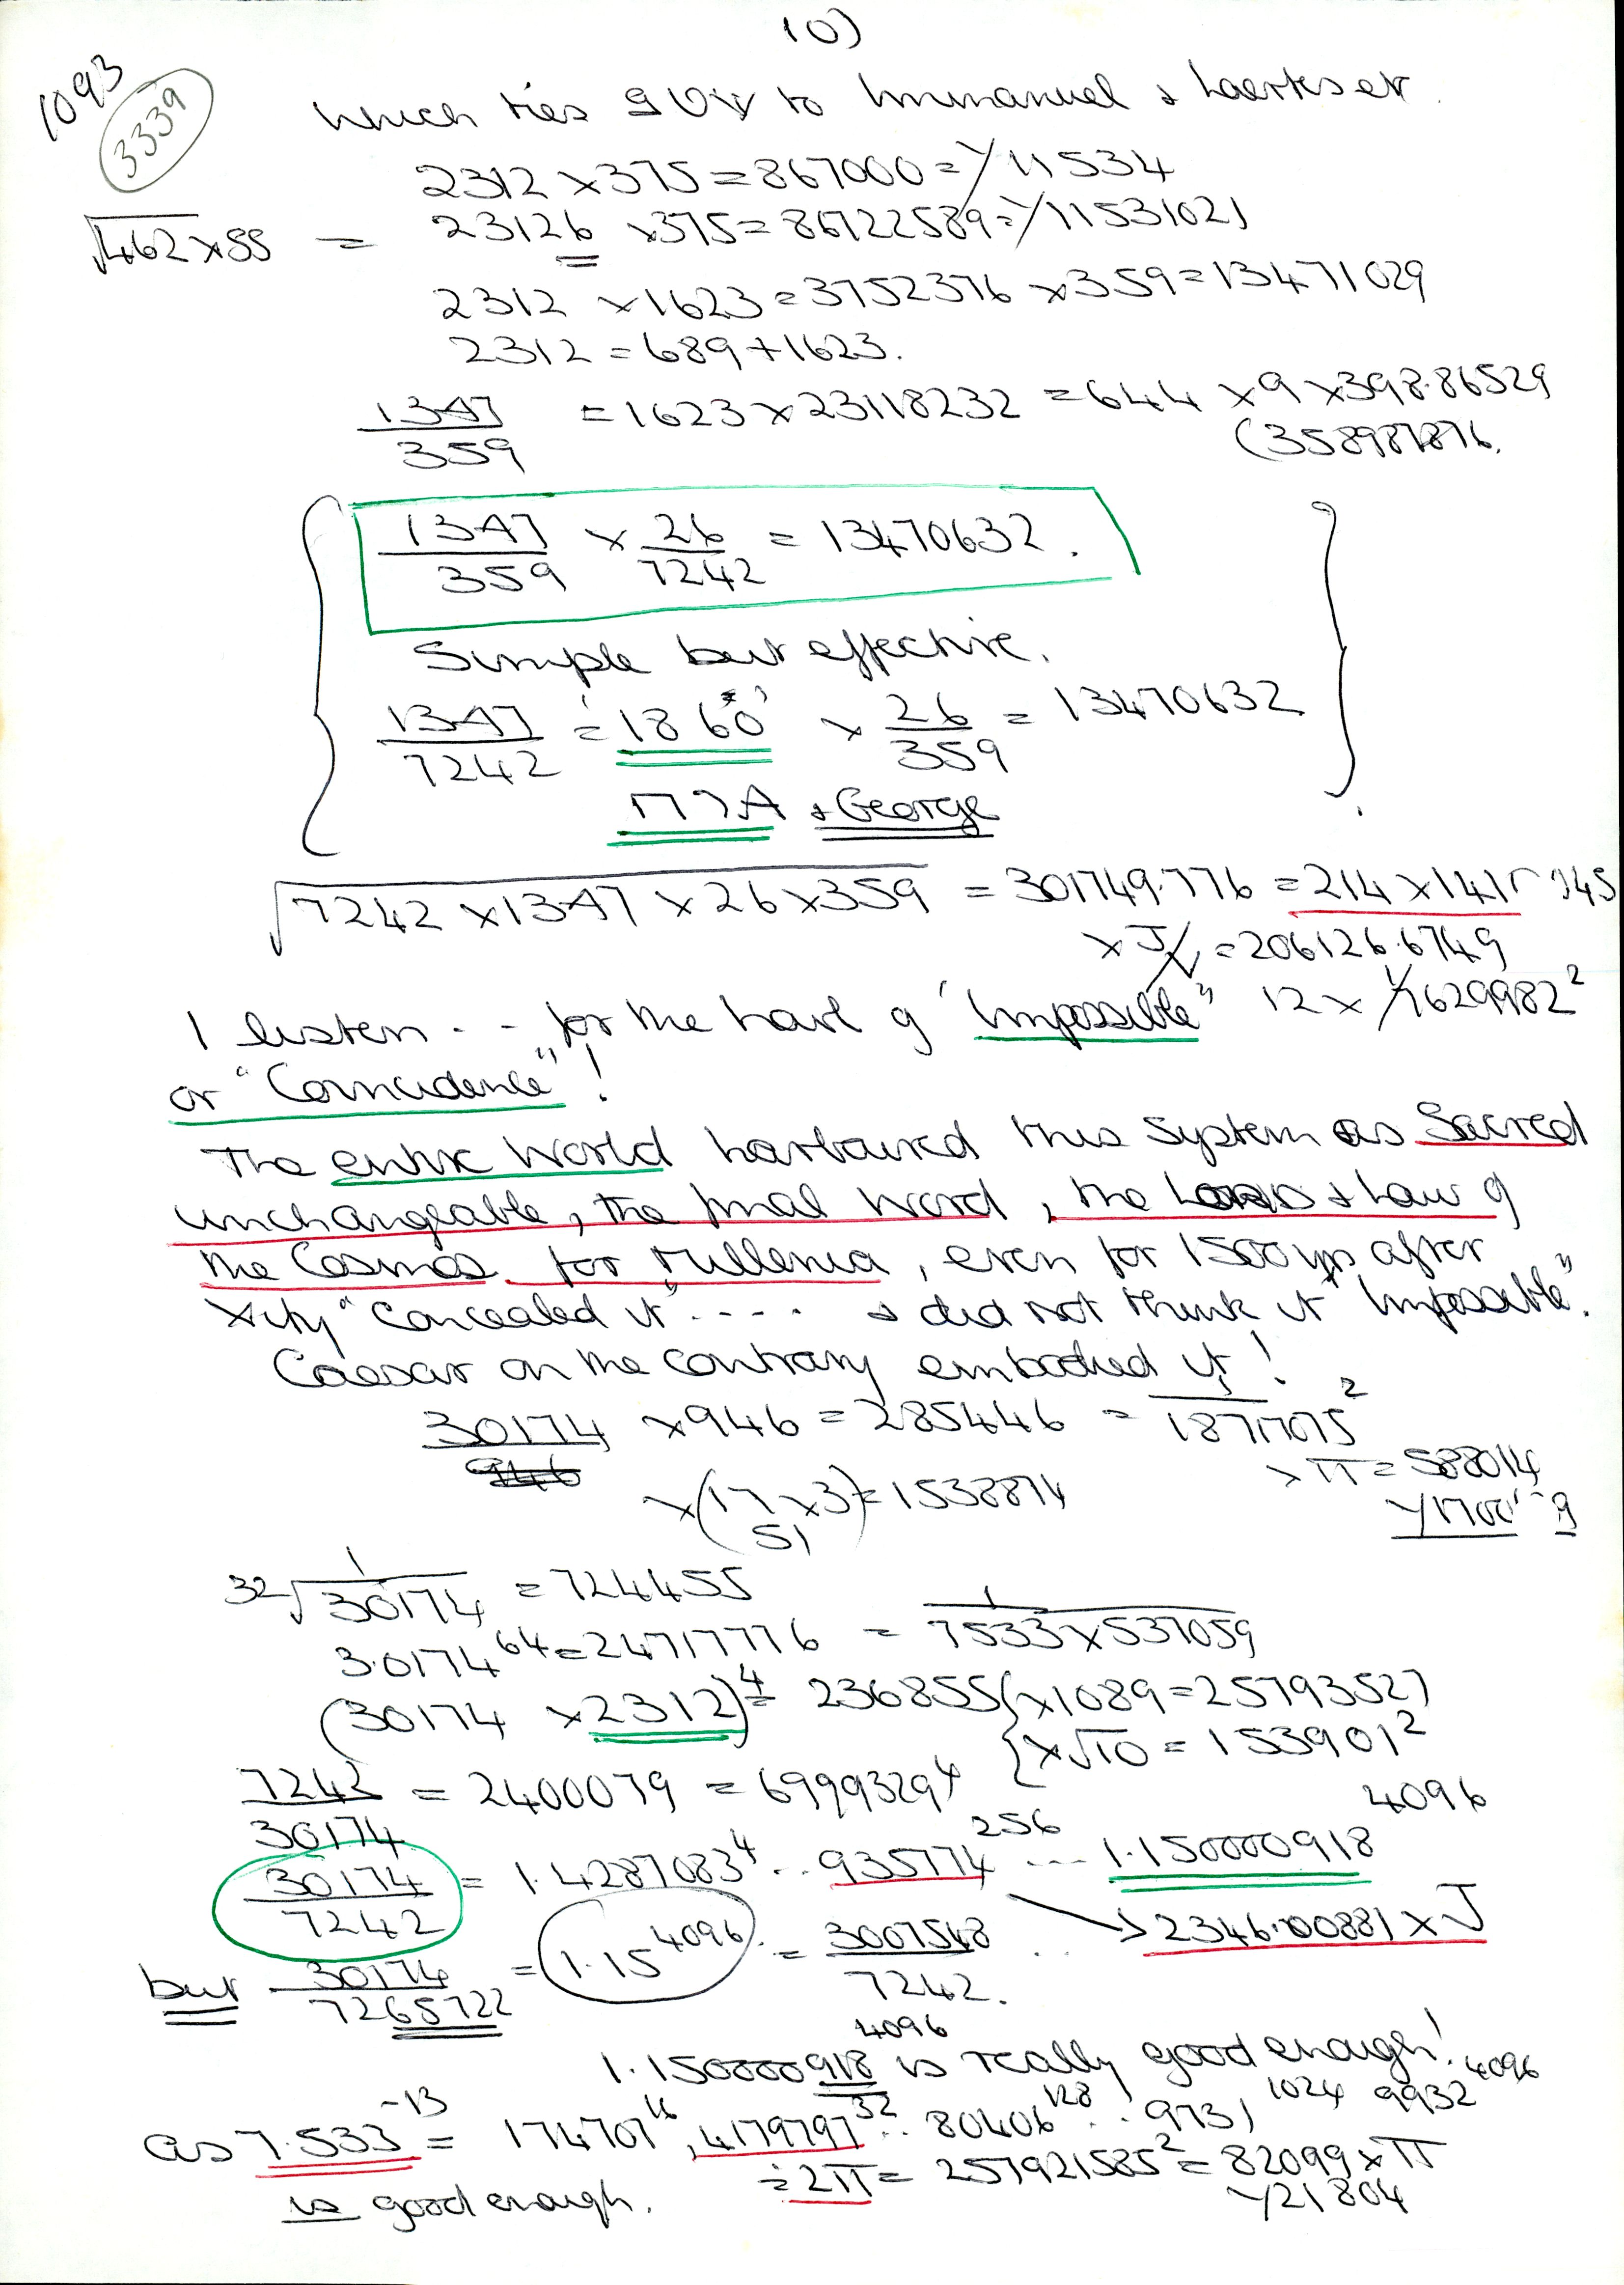 10)
1093
3339
which ties to Immanuel &
2312 × 375 = 867000 = 1/11534
√462 × 55 = 23126 × 375 = 86722589 = 1/11531021
2312 × 1623 = 3752376 × 359 = 13471029
2312 = 689 + 1623.
1347/359 = 1623 × 23118232 = 644 × 9 × 398.86529
(358987876.
1347/359 × 26/7242 = 13470632.
Simple but effective.
1347/7242 = 1860 × 26/359 = 13470632
& George
√7242 × 1347 × 26 × 359 = 301749.776 = 214 × 141
× J/ = 206126.6749
I listen . . - for the howl of "Impossible" 12 × 1/7629982²
or "Coincidence"!
The entire World harboured this System as Sacred
unchangeable, the final Word, the & Law of
the Cosmos for Millenia, even for 1500 yrs after
Xity "concealed it" . . . . & did not think it "Impossible".
Caesar on the contrary embodied it!
30174 × 946 = 285446 = 1/18717075²
× (17 × 3) = 1538874 × π = 588014
51
³²√1/30174 = 724455
3.0174⁶⁴ = 24717776 = 1/7533 × 537059
(30174 × 2312)⁴ = 236855 (× 1089 = 25793527
{× √10 = 153901²
7242/30174 = 2400079 = 6999329⁴
30174/7242 = 1.4287083⁴ . . 935774²⁵⁶ . . . 1.150000918⁴⁰⁹⁶
→ 2346.00881 × J
but 30174/7265722 = 1.15⁴⁰⁹⁶ = 3007548/7242.
1.150000918⁴⁰⁹⁶ is really good enough!
as 7.533⁻¹³ = 174707¹⁶, 4179797³² . . 80406¹²⁸ . . 9731¹⁰²⁴ 9932⁴⁰⁹⁶
is good enough. ÷ 2π = 257921585² = 82099 × π
1/21804